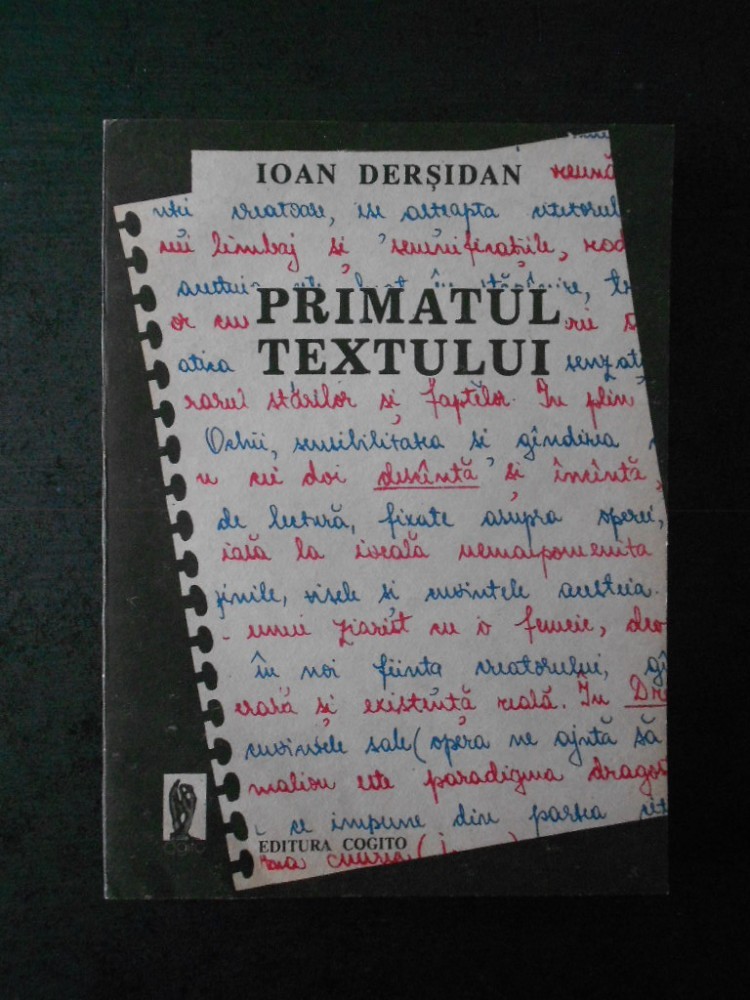 IOAN DERȘIDAN
reună
vii creatoare, se așteapta cititorul
nui limbaj și semnificațiile, rod
PRIMATUL
or cu rii
TEXTULUI
atica senzați
rarul stărilor și faptelor. În plin
Ochii, sensibilitatea și gîndirea
u cei doi descîntă și încîntă,
de lectură, fixate asupra operei,
iasă la iveală nemaipomenita
ginile, visele și cuvintele acesteia.
unui ziarist cu o femeie, deo
în noi ființa creatorului, gî
erară și existență reală. În Dra
cuvintele sale (opera ne ajută să
malion este paradigma dragos
ce impune din partea cit
EDITURA COGITO